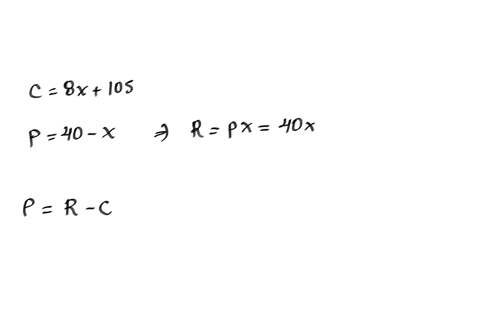 C = 8x + 105
p = 40 - x ⇒ R = px = 40x
P = R - C